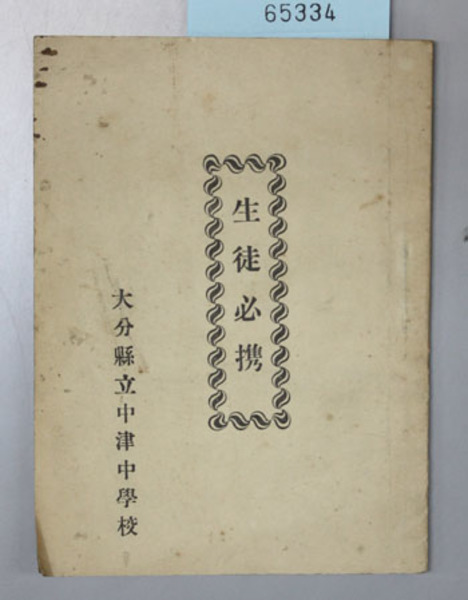 65334
生徒必携
大分縣立中津中學校